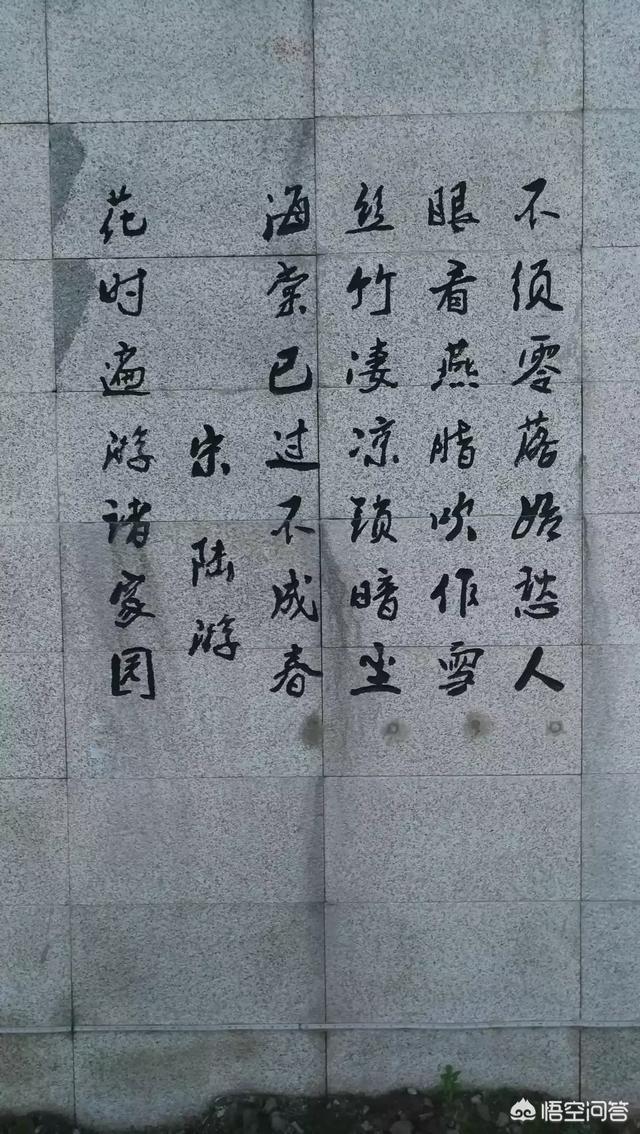 花时遍游诸家园
宋 陆游
海棠已过不成春
丝竹凄凉锁暗尘
眼看燕脂吹作雪
不须零落始愁人
悟空问答